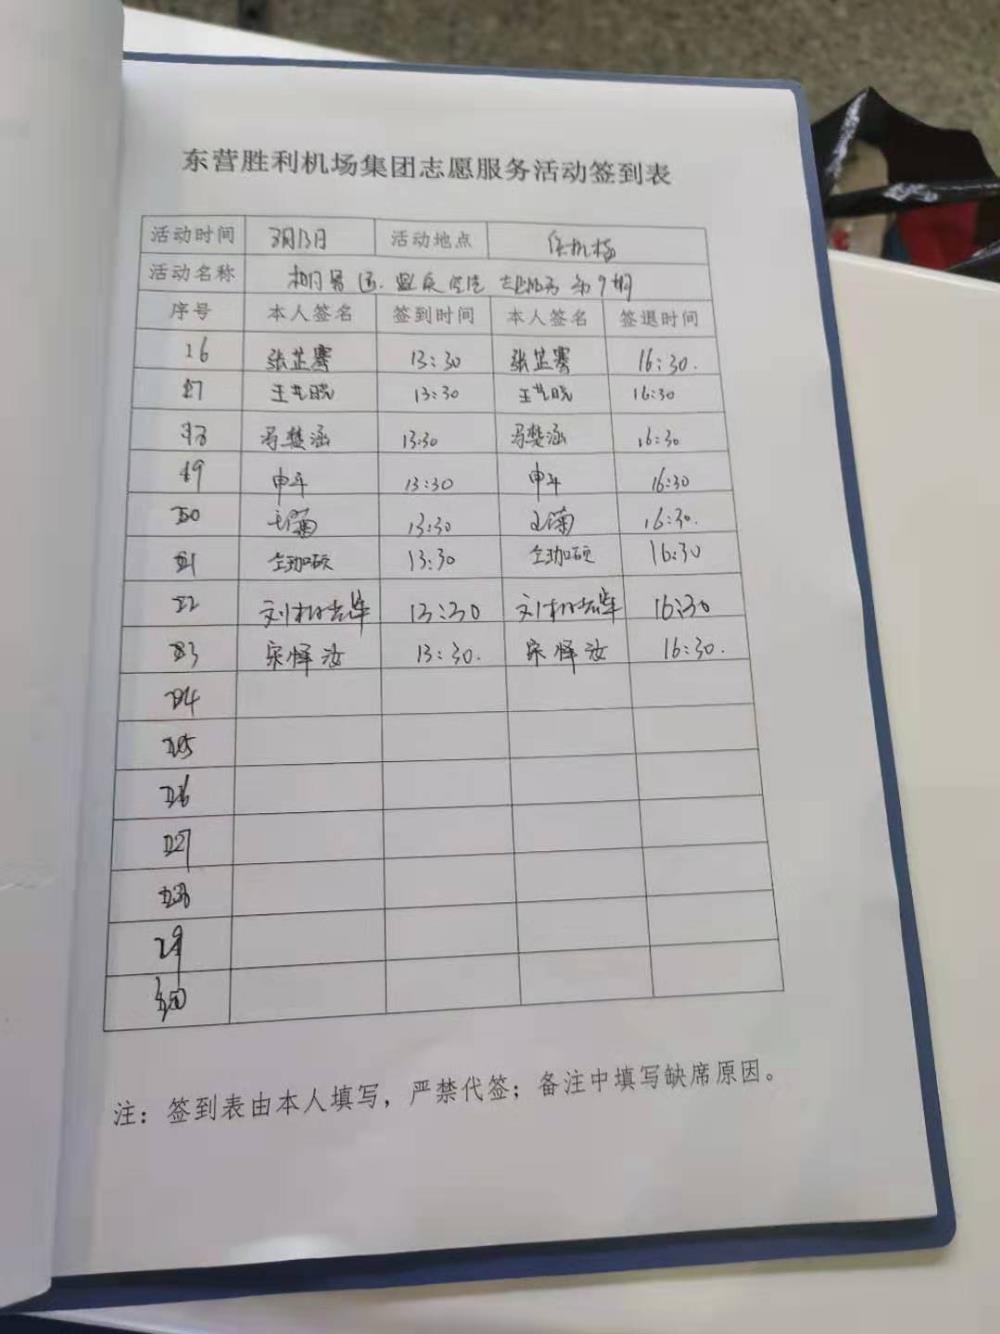 东营胜利机场集团志愿服务活动签到表
活动时间 3月13日 活动地点 候机楼
活动名称 第9期
序号 本人签名 签到时间 本人签名 签退时间
16 张芷骞 13:30 张芷骞 16:30.
17 王艺晓 13:30 王艺晓 16:30
18 马楚涵 13:30 马楚涵 16:30
19 申斗 13:30 申斗 16:30
20 13:30 16:30.
21 仝珈硕 13:30 仝珈硕 16:30
22 13:30 16:30
23 宋怿汝 13:30. 宋怿汝 16:30.
24
25
26
27
28
29
30
注：签到表由本人填写，严禁代签；备注中填写缺席原因。